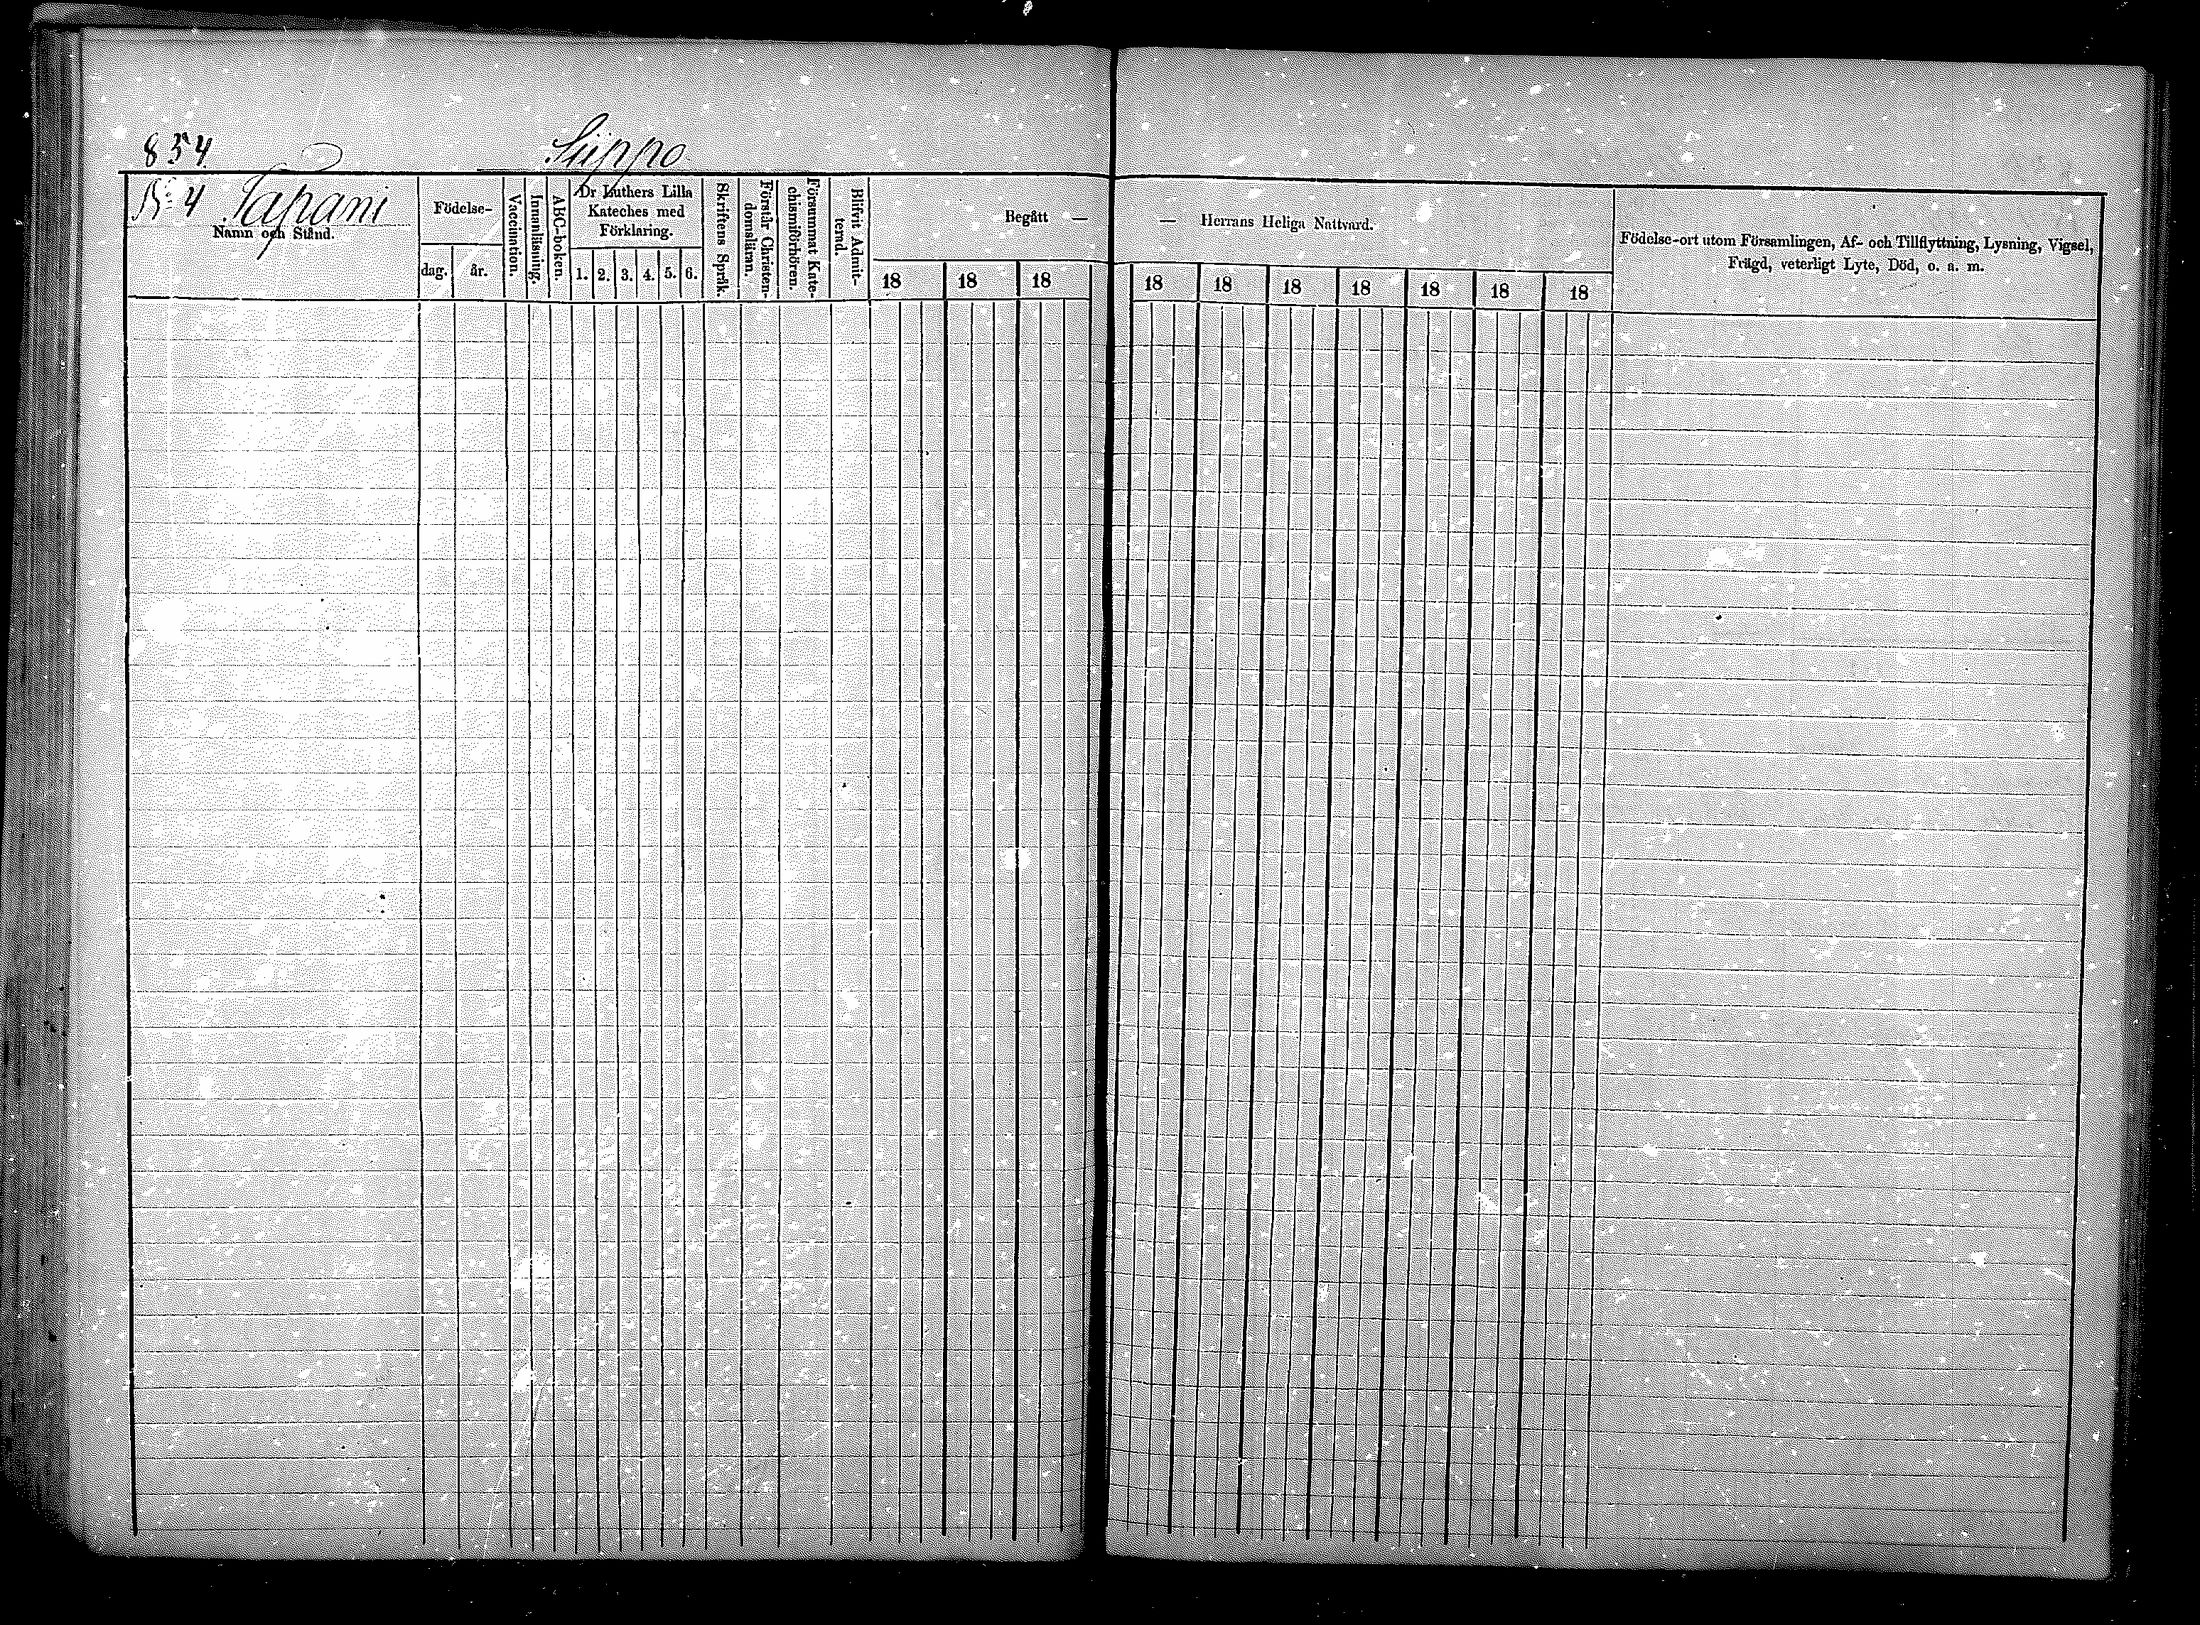 834
Sippo
No 4 Tapani
Namn och Stånd.
Födelse-
dag.
år.
Vaccination.
Innanläsning.
ABC-boken.
Dr Luthers Lilla
Kateches med
Förklaring.
1. 2. 3. 4. 5. 6.
Skriftens Språk.
Förstår Christen-
domsläran.
Försummat Kate-
chismiförhören.
Blifvit Admit-
terad.
Begått —
18 18 18
— Herrans Heliga Nattvard.
18 18 18 18 18 18 18
Födelse-ort utom Församlingen, Af- och Tillflyttning, Lysning, Vigsel,
Frägd, veterligt Lyte, Död, o. a. m.